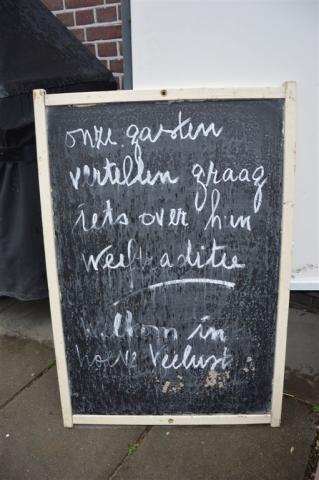 onze gasten
vertellen graag
iets over hun
weeftraditie
welkom in
hoeve Veelust